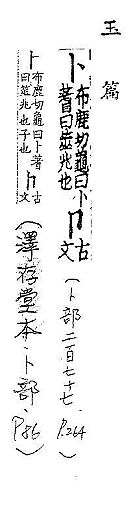 玉篇
卜布鹿切龜曰卜
蓍曰筮兆也
𠁡古文
(卜部二百七十七 P.264)
卜布鹿切龜曰卜蓍
曰筮兆也子也
古文
(澤存堂本·卜部·P.86)